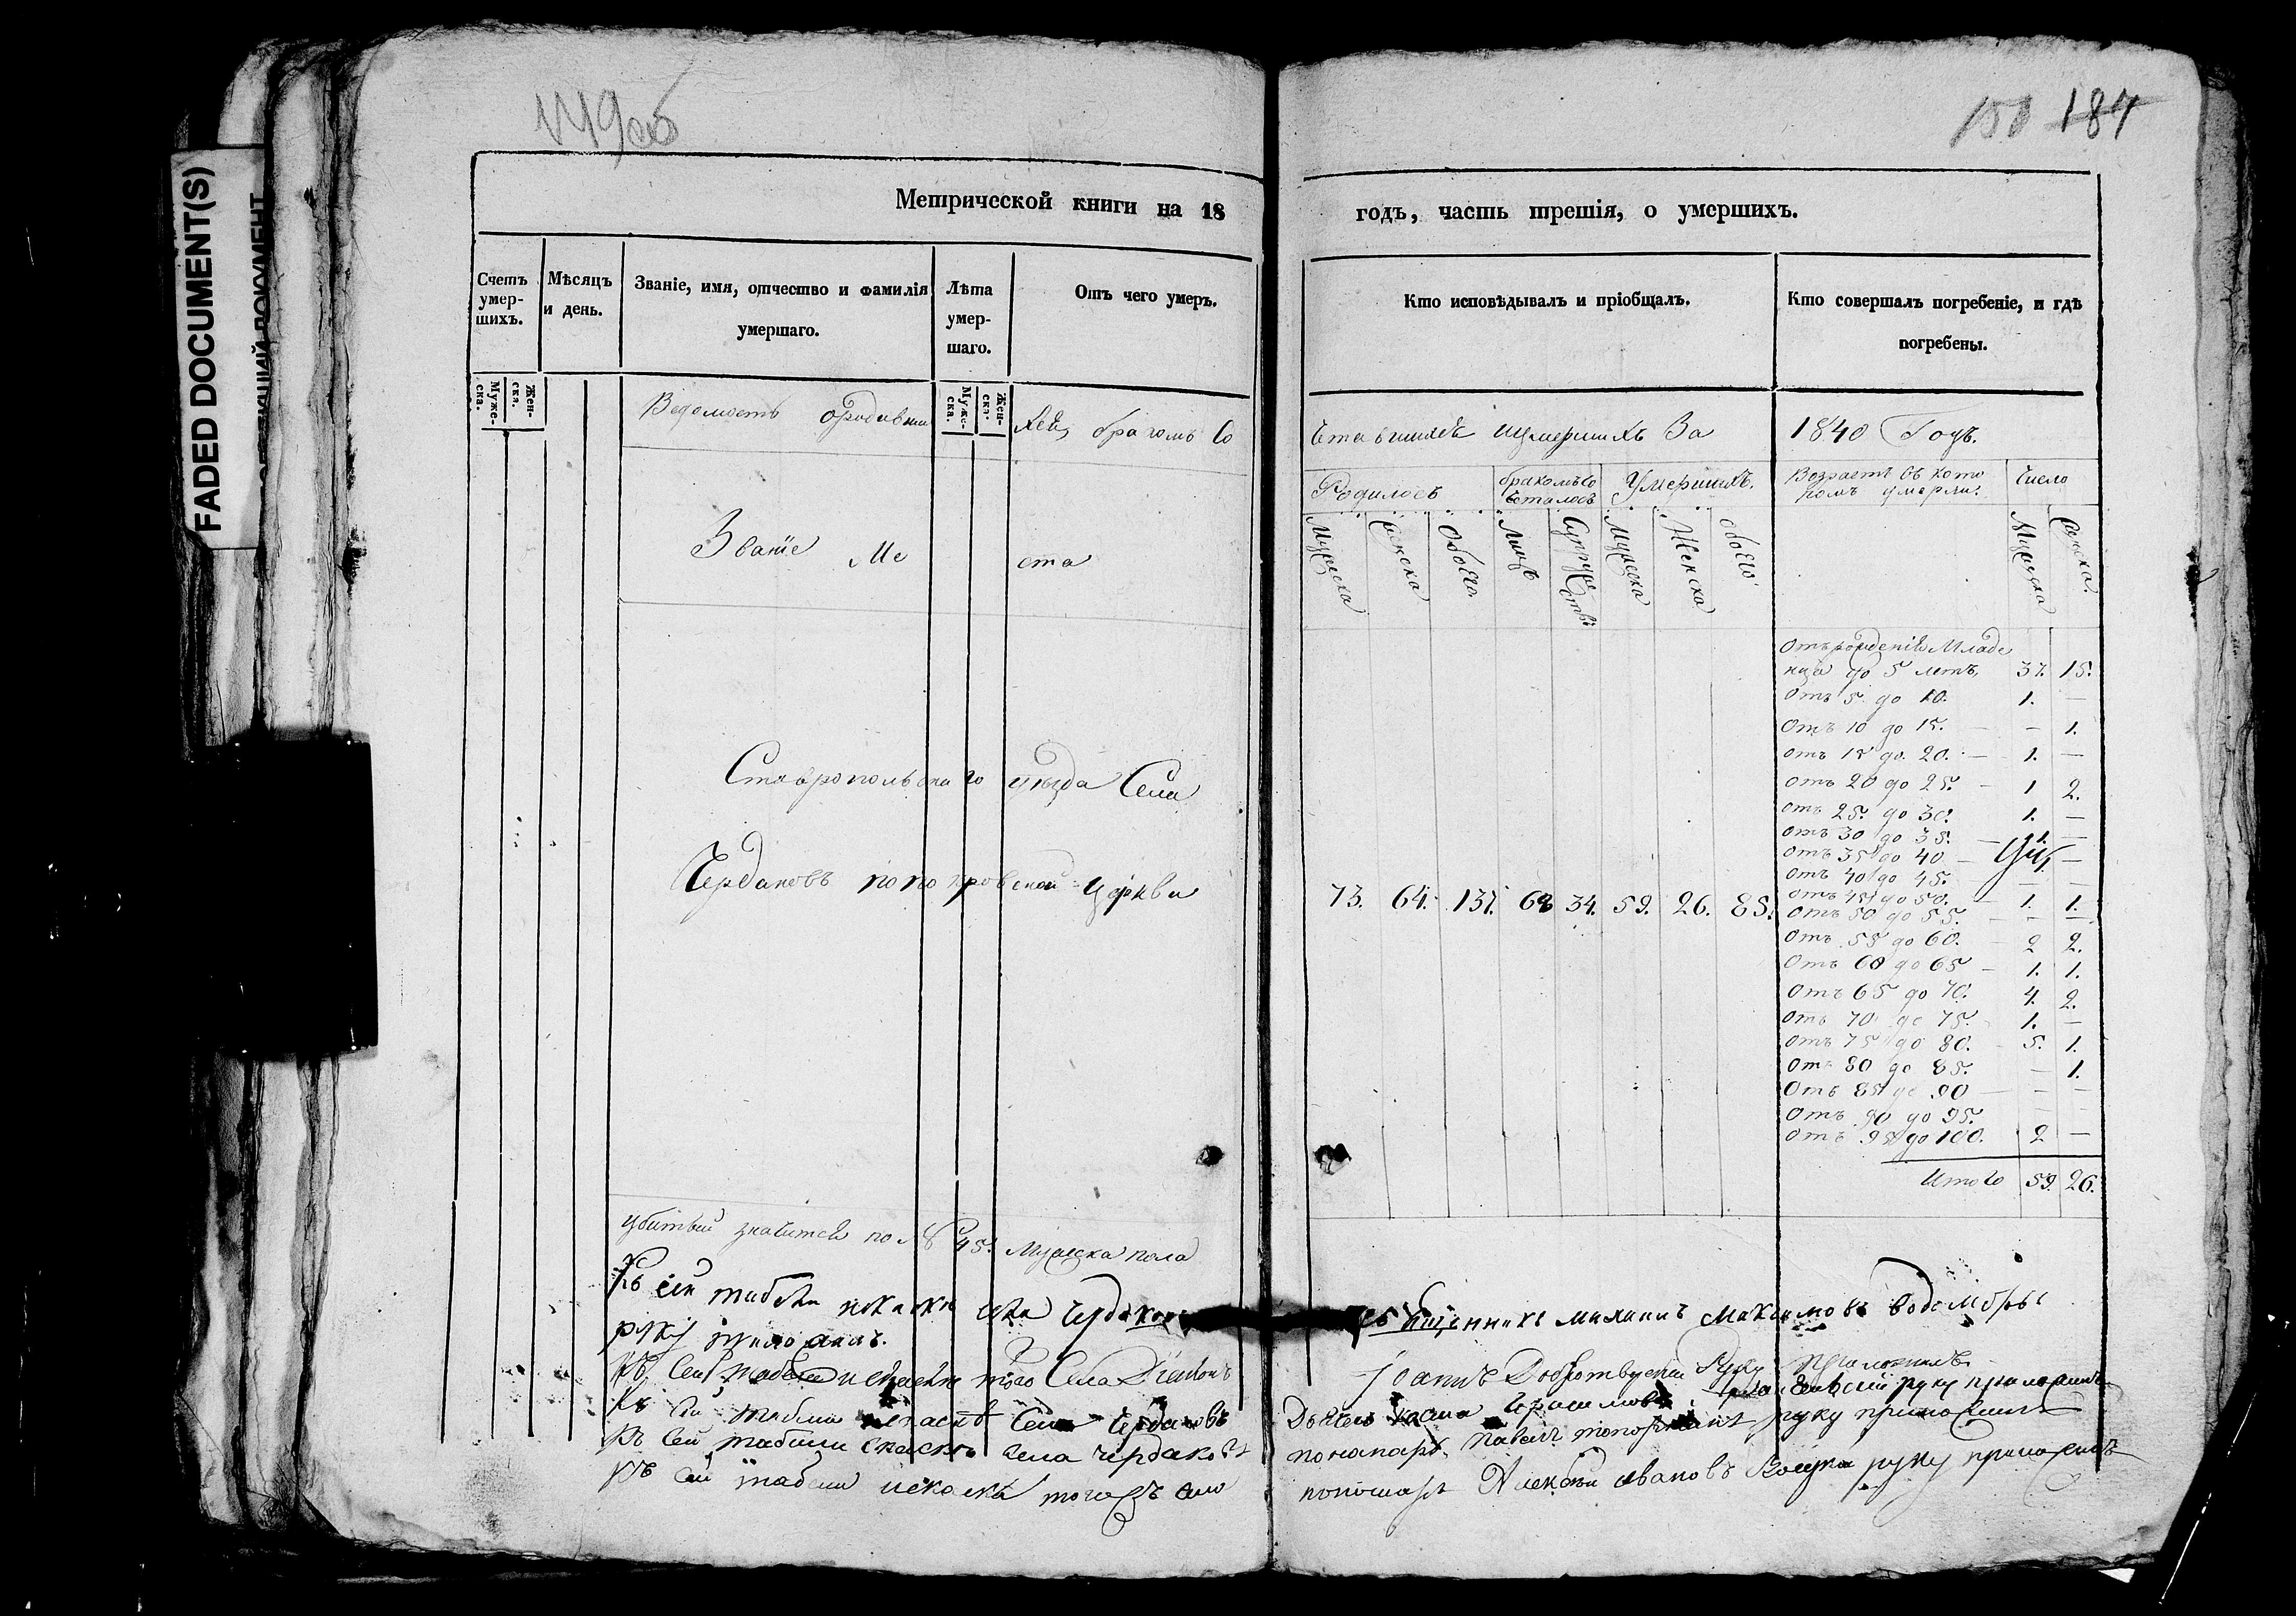 FADED DOCUMENT(S)
149об
150 187
Метрической книги на 18 годъ, часть третія, о умершихъ.
Счетъ умер-шихъ.
Мѣсяцъ и день.
Званіе, имя, отчество и фамилія умершаго.
Лѣта умер-шаго.
Отъ чего умеръ.
Кто исповѣдывалъ и пріобщалъ.
Кто совершалъ погребеніе, и гдѣ погребены.
Муже-ска.
Жен-ска.
Муже-ска.
Жен-ска.
Ведомость о родившихся, бракомъ Сочетавшихся и умершихъ За 1840 Годъ.
Званіе Места
Родилось
бракомъ Сочеталось
Умершихъ.
Возрастъ въ которомъ умерли.
Число
Мужеска
Женска
Обоего
Лицъ
Супружествъ
Мужеска
Женска
обоего
Мужеска
Женска
Отъ рожденія Младенца до 5 летъ, 37. 15.
Отъ 5 до 10. 1. —
Отъ 10 до 15. — 1.
отъ 15 до 20. — 1. —
отъ 20 до 25. — 1 2.
отъ 25 до 30. 1. —
отъ 30 до 35. —
отъ 35 до 40 — —
отъ 40 до 45. — —
отъ 45 до 50. — 1. 1.
отъ 50 до 55. — — —
отъ 55 до 60. 2 2.
отъ 60 до 65 — 1. 1.
отъ 65 до 70. 4. 2.
отъ 70 до 75. 1. —
отъ 75 до 80. 5. 1.
отъ 80 до 85. — 1.
отъ 85 до 90 — — —
отъ 90 до 95.
отъ 95 до 100. 2 —
Итого 59. 26.
Ставропольскаго уезда Села
Чердаковъ по покровской церкви
73. 64. 137. 68 34. 59. 26. 85.
убитый значится по № 45. Мужеска пола
Къ сей табели села Чердаковъ священникъ Максимовъ
руку приложилъ.
Къ сей табели того Села Диаконъ Іоаннъ руку приложилъ
Къ сей табели Села Чердаковъ Дьячекъ Герасимовъ руку приложилъ
Къ сей табели села Чердаковъ пономарь Павелъ руку приложилъ
Къ сей табели тогожъ села пономарь Алексѣй Ивановъ руку приложилъ